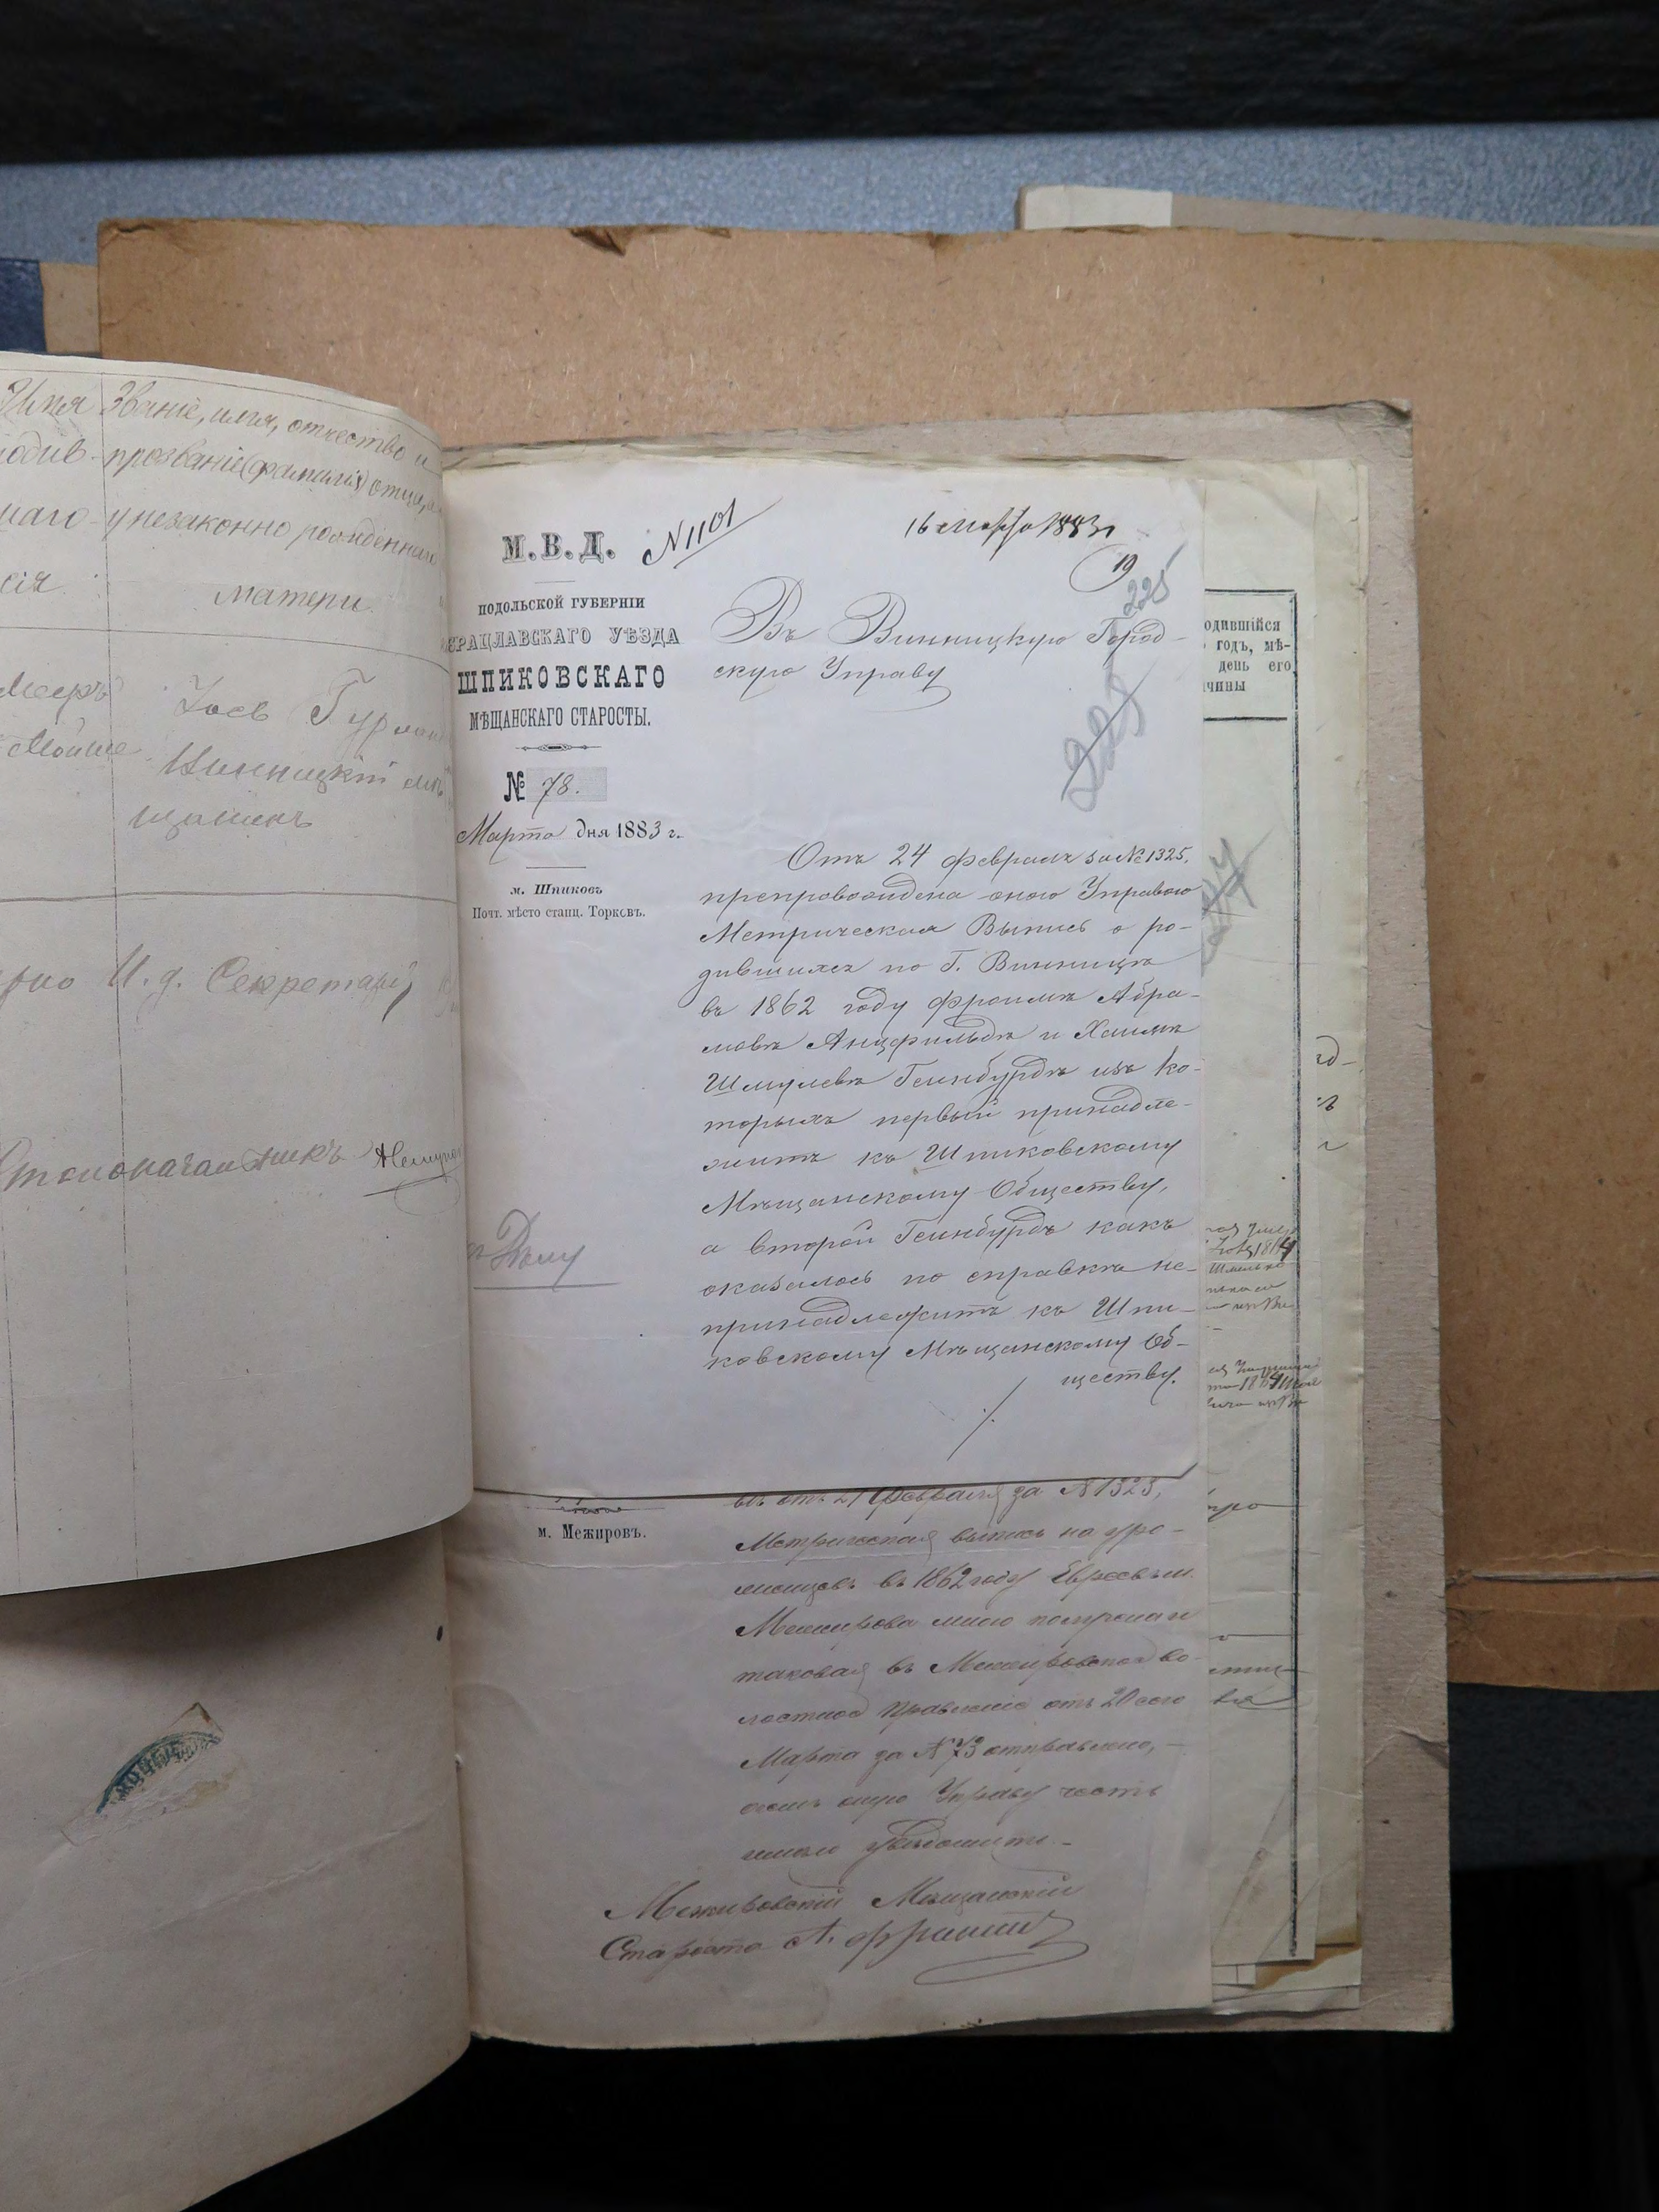 Имя
Званіе, имя, отчество и
родив-
прозваніе (фамилія) отца, а
шаго-
у незаконно рожденнаго
ся.
матери.
Мееръ
Мойше
Іосъ Гурман
Винницкій мѣ
щанинъ
И. д. Секретарь
Столоначальникъ
М. В. Д.
N 1101
16 марта 1883 г
19
225
ПОДОЛЬСКОЙ ГУБЕРНІИ
БРАЦЛАВСКАГО УѢЗДА
ШПИКОВСКАГО
МѢЩАНСКАГО СТАРОСТЫ.
№ 78.
Марта дня 1883 г.
м. Шпиковъ
Почт. мѣсто станц. Торковъ.
Въ Винницкую Город-
скую Управу
Отъ 24 февраля за № 1325,
препровождена оною Управою
Метрическая Выпись о ро-
дившихся по Г. Винницѣ
въ 1862 году Фроимѣ Абра-
мовѣ Анцфильдѣ и Хаимѣ
Шмулевѣ Геинбурдѣ изъ ко-
торыхъ первый принадле-
житъ къ Шпиковскому
Мѣщанскому Обществу,
а второй Геинбурдъ какъ
оказалось по справкѣ не-
принадлежитъ къ Шпи-
ковскому Мѣщанскому Об-
ществу.
Дѣлу
одившійся
годъ, мѣ-
день его
чины
м. Межировъ.
отъ 21 Февраля за N 1325,
Метрическая выпись на уро-
женцовъ въ 1862 году Евреевъ м.
Межирова мною получена и
таковая въ Межировское Во-
лостное Правленіе отъ 20 сего
Марта за N 73 отправлено, -
о чемъ оную Управу честь
имѣю увѣдомить. -
Межировскій Мѣщанскій
Староста А.